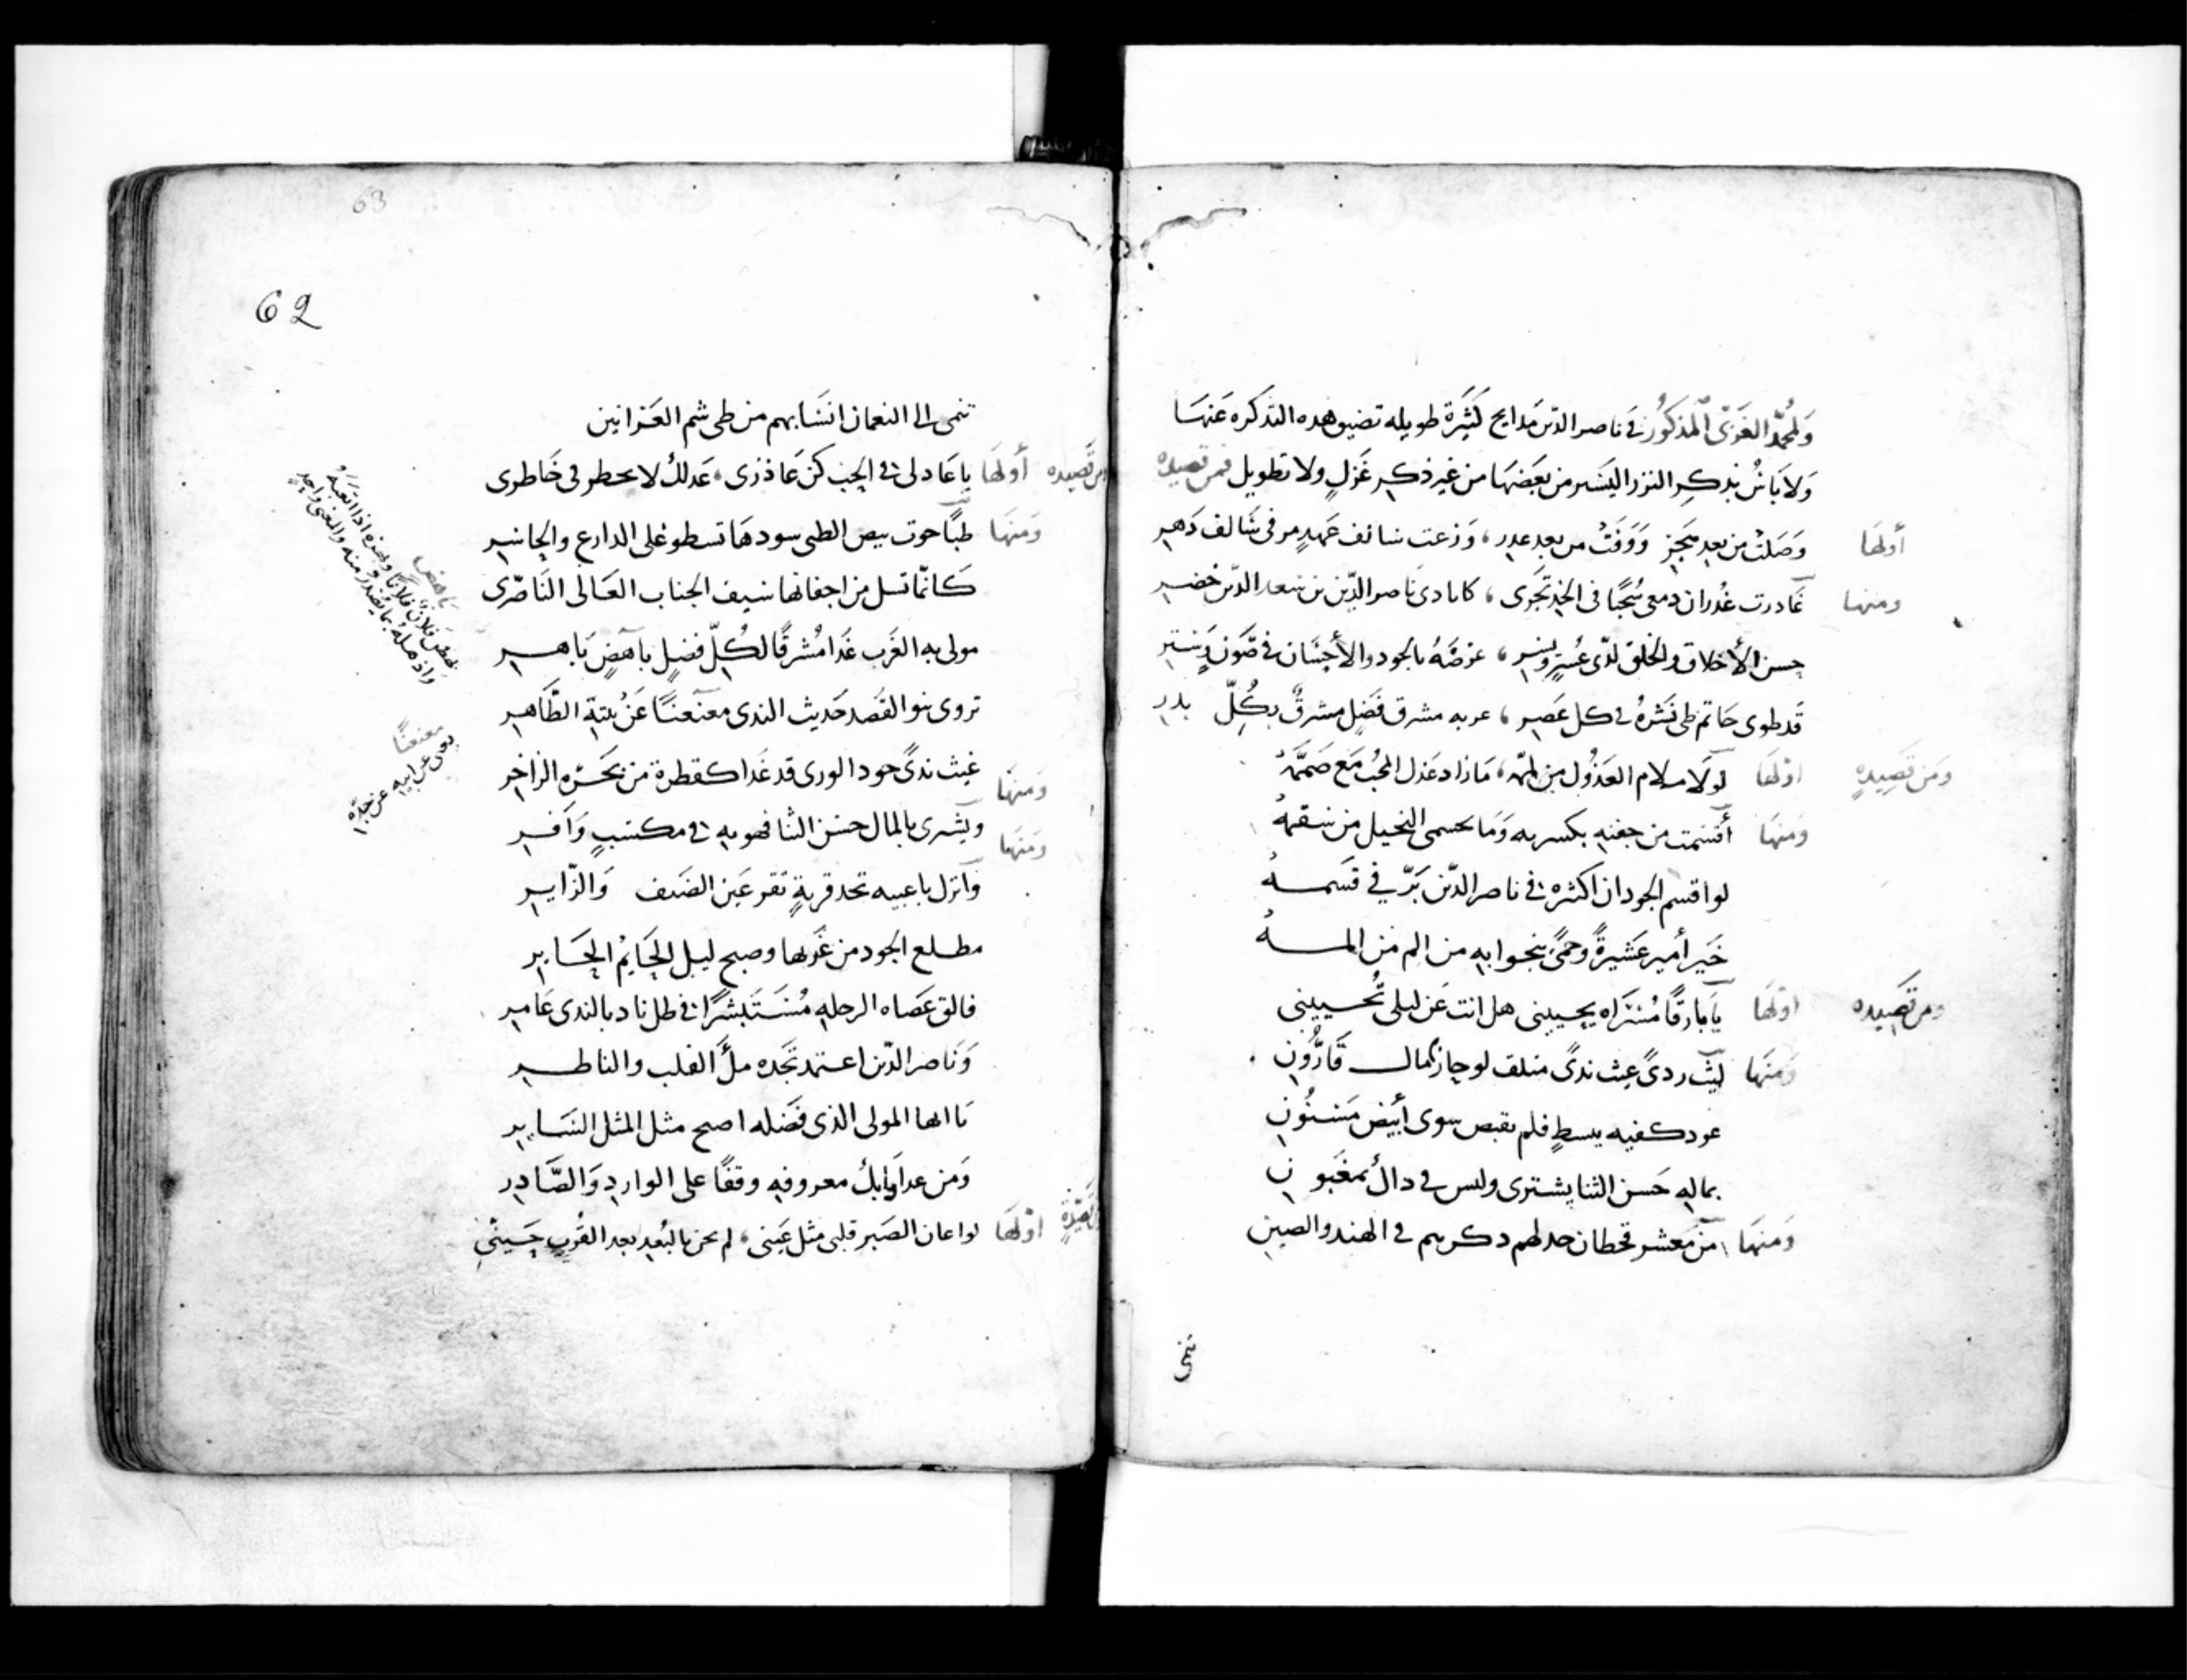 ولمحمد الغزى المذكور في ناصر الدين مدايح كثيرة طويله تضيق هده التدكره عنها
ولا بأس بذكر النزر اليسير من بعضها من غير ذكر غزل ولا تطويل فمن قصيده
أولها وصلت من بعد هجز ووفت من بعد غدر
ومنها غادرت غدران دمعى سحبا في الخد تجرى ، كايادى ناصر الدين بن سعد الدين خضر
حسن الأخلاق والخلق لدى عسر ويسر ، عرضه بالجود والأحسان في صون وستر
قد طوى حاتم طى نشره في كل عصر ، مشرق فضل مشرق بكل بدر
ومن قصيدة اولها لولا ملام العذول من لمه ، ما زاد عذل المحب مع صممه
ومنها أقسمت من جفنه بكسر به وما النحيل من سقمه
لو اقسم الجود ان اكثره في ناصر الدين بر في قسمه
خير أمير عشيرة وحمى ينجوا به من الم من المه
ومن قصيده اولها يا بارقا مسراه يحيينى هل انت عن ليلى تحيينى
ومنها ليث ردى غيث ندى متلف لو جاز مال قارون
عود كفيه ببسط فلم يقبض سوى أبيض مسنون
بماله حسن الثنا يشترى وليس في داك بمغبون
ومنها من معشر قحطان دكرهم في الهند والصين
تنمى
62
63
تنمى الى النعمان انسابهم من طى شم العرانين
ومن قصيده أولها يا عادلى في الحب كن عاذرى ، عدلك لا يخطر في خاطرى
ومنها بيض الطبى سودها تسطو على الدارع والحاسر
كانما تسل من اجفانها سيف الجناب العالى الناصرى
مولى به الغرب غدا مشرقا لكل فضل باهض باهر
تروى بنو القصد حديث الندى معنعنا عن بيته الطاهر
ومنها غيث ندى جود الورى قد غدا كقطرة من بحره الزاخر
ومنها ويشترى بالمال حسن الثنا فهو به في مكسب وافر
وانزل تجد قربة تقر عين الضيف والزاير
مطلع الجود من غربها وصبح ليل الحايم الحاير
فالق عصاه الرحله مستبشرا في ظل ناد بالندى عامر
وناصر الدين اعتمد تجده ملأ القلب والناظر
يا ايها المولى الذى فضله اصبح مثل المثل الساير
ومن غدا معروفه وقفا على الوارد والصادر
قصيدة اولها لو اعان الصبر قلبى مثل عينى ، لم بالبعد بعد القرب حينى
باهض
بهض فلان فلانا وبهزه اذا اتعبه
معنعنا
يعنى عن ابيه عن جده